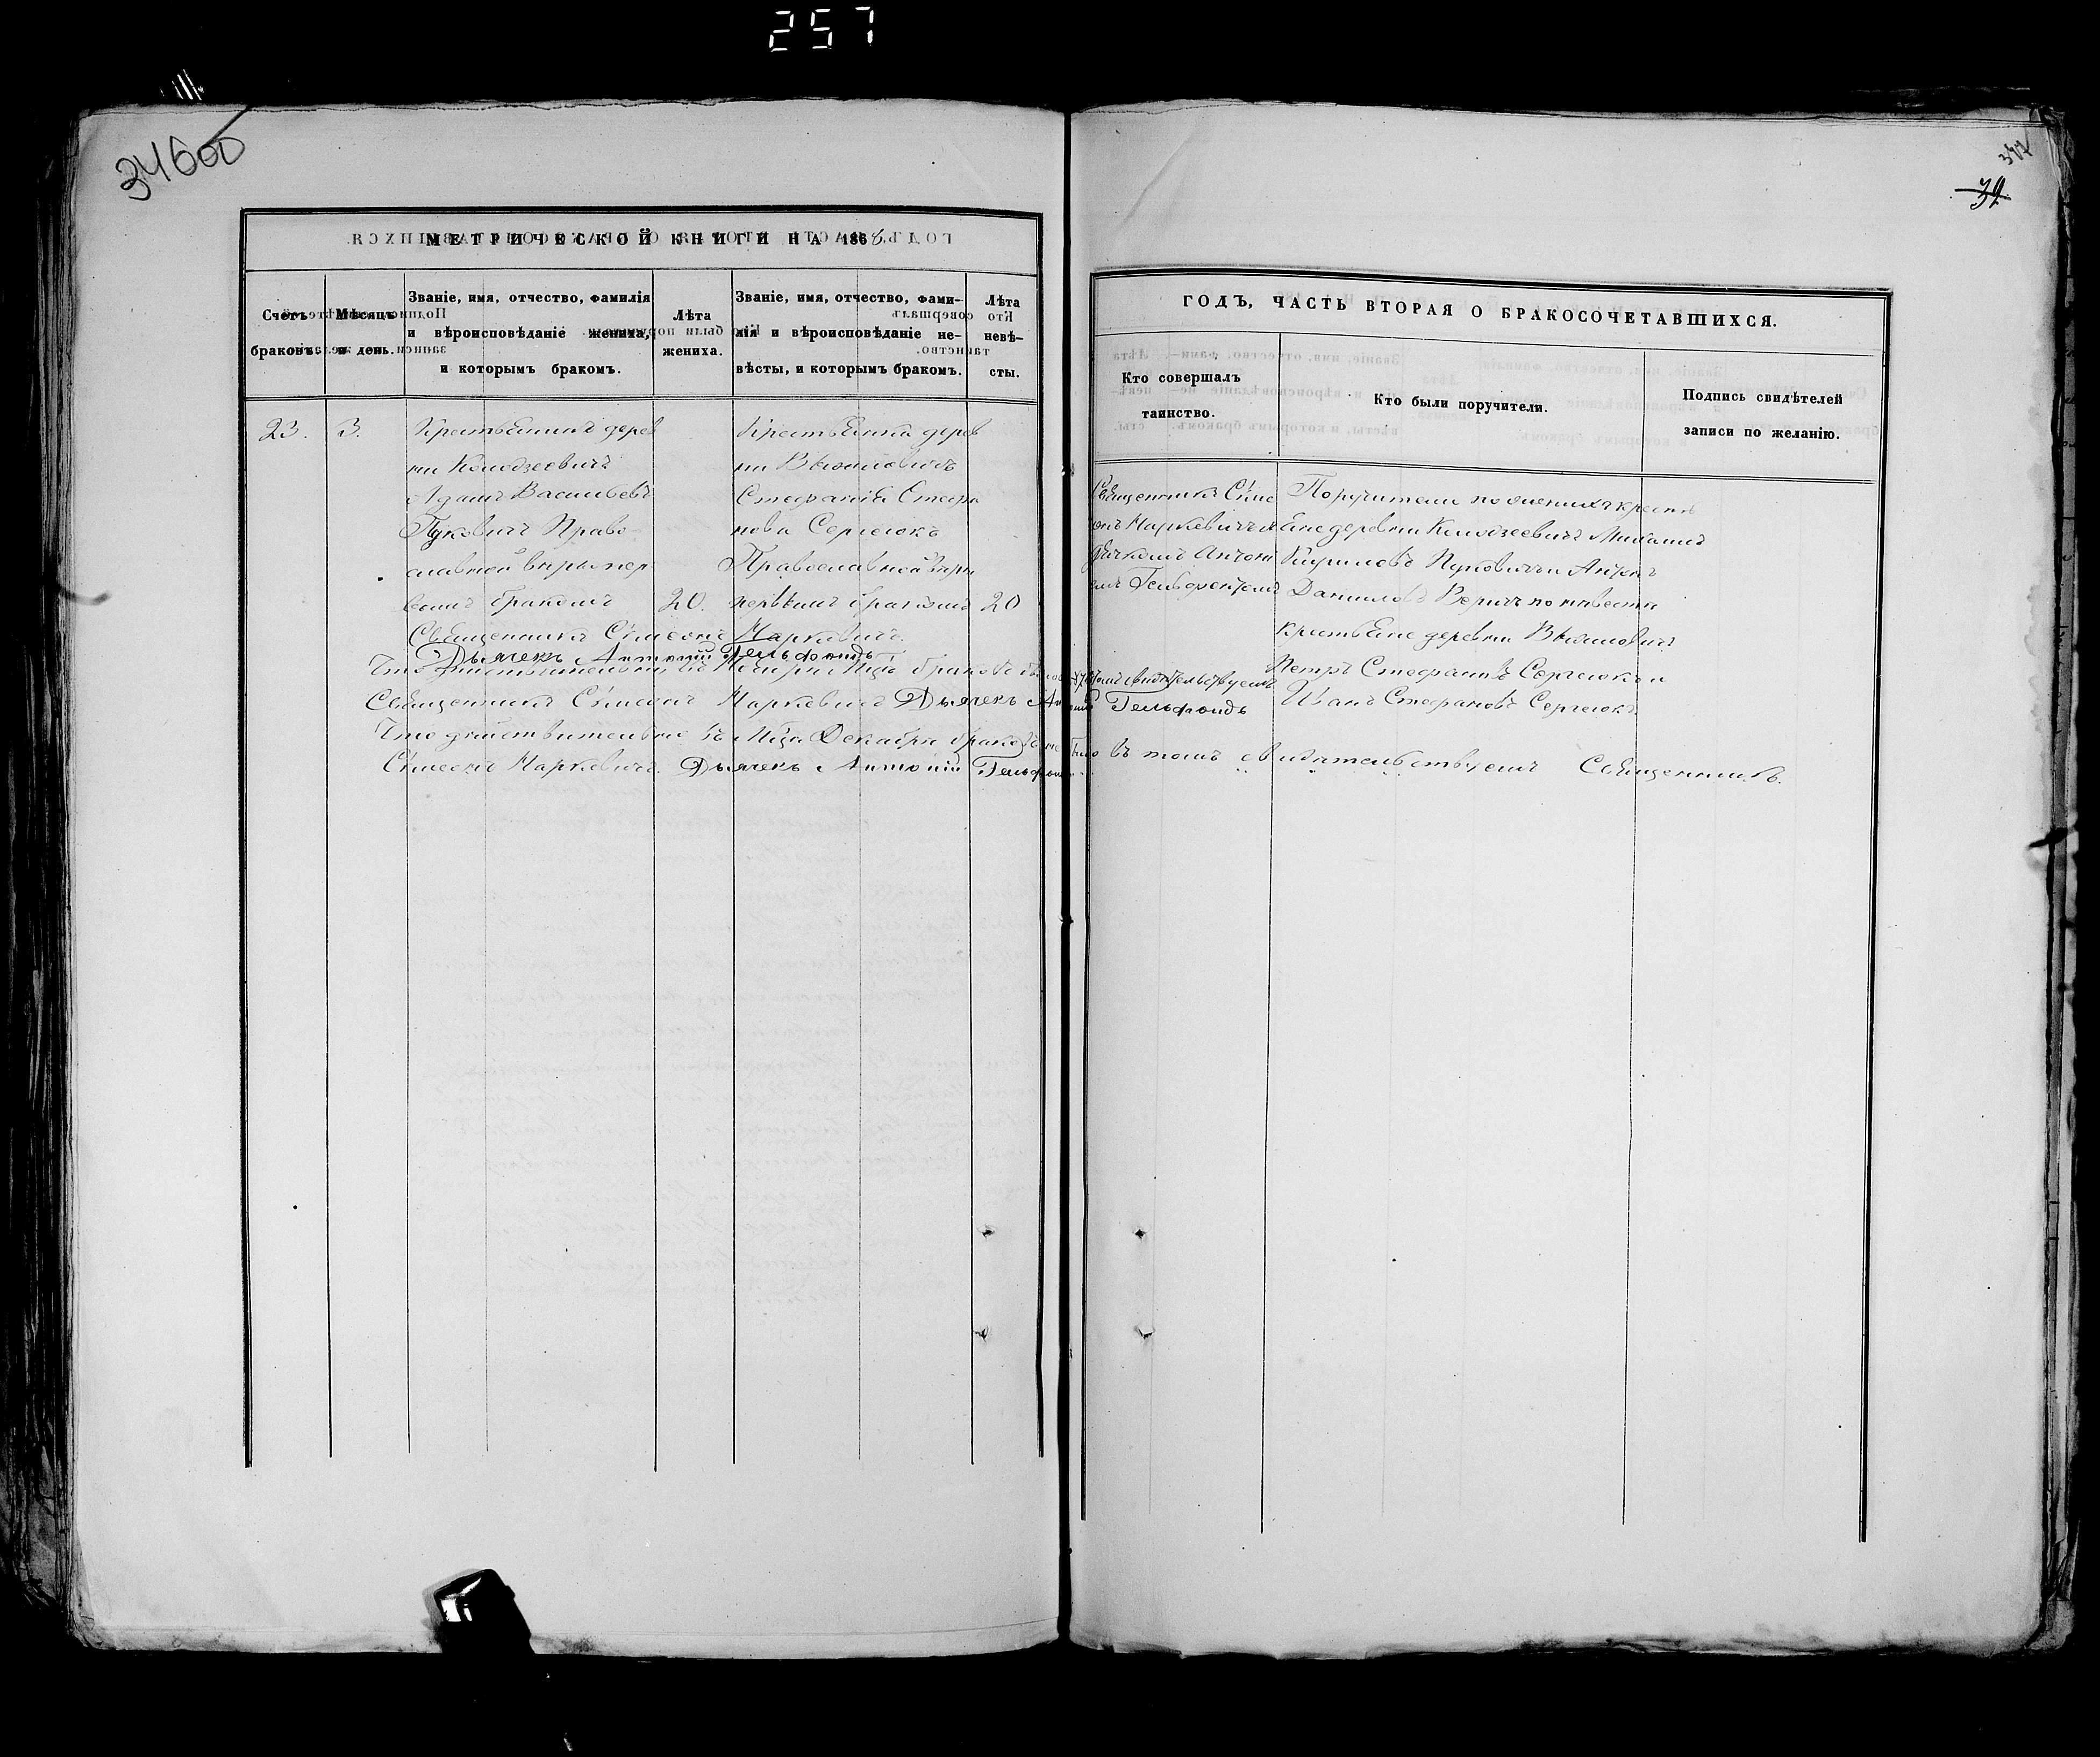 257
34600
347
39
МЕТРИЧЕСКОЙ КНИГИ НА 1868
Счетъ браковъ.
Мѣсяцъ и день.
Званіе, имя, отчество, фамилія
и вѣроисповѣданіе жениха,
и которымъ бракомъ.
Лѣта
жениха.
Званіе, имя, отчество, фами-
лія и вѣроисповѣданіе не-
вѣсты, и которымъ бракомъ.
Лѣта
невѣ-
сты.
23.
3.
Крестьянинъ дерев
ни Колодзеевичъ
Адамъ Васильевъ
Пуковичъ Право
славной вѣры пер
вымъ бракомъ
20.
Крестьянка дерев
ни
Стефанія Стефа
нова Сергеюкъ
Православной вѣры
первымъ бракомъ
20
Священникъ Сѵмеонъ Маркевичъ.
Дьячекъ Антоній Гельфондъ
Что дѣйствительно въ браковъ
Священникъ Сѵмеонъ Маркевичъ Дьячекъ Антоній Гельфондъ
Что дѣйствительно въ Мцѣ Декабрѣ браковъ не было въ томъ свидѣтельствуемъ Священникъ
Сѵмеонъ Маркевичъ. Дьячекъ Антоній Гельфондъ
ГОДЪ, ЧАСТЬ ВТОРАЯ О БРАКОСОЧЕТАВШИХСЯ.
Кто совершалъ
таинство.
Кто были поручители.
Подпись свидѣтелей
записи по желанію.
Священникъ Сѵме
онъ Маркевичъ съ
дьячкомъ Антоні
емъ Гельфондомъ
Поручители по женихѣ крестья
не деревни Колодзеевичъ Михаилъ
Кириловъ Пуковичъ и Антонъ
Даниловъ по невѣстѣ
крестьяне деревни
Петръ Стефановъ Сергеюкъ и
Иванъ Стефановъ Сергеюкъ.